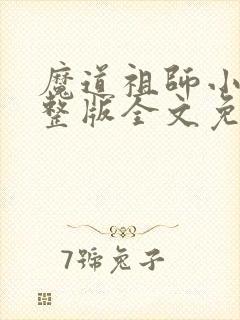 魔道祖師小
整版全文免
7號兔子